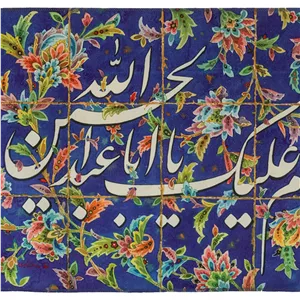 علیک یا اباعبدالله الحسین